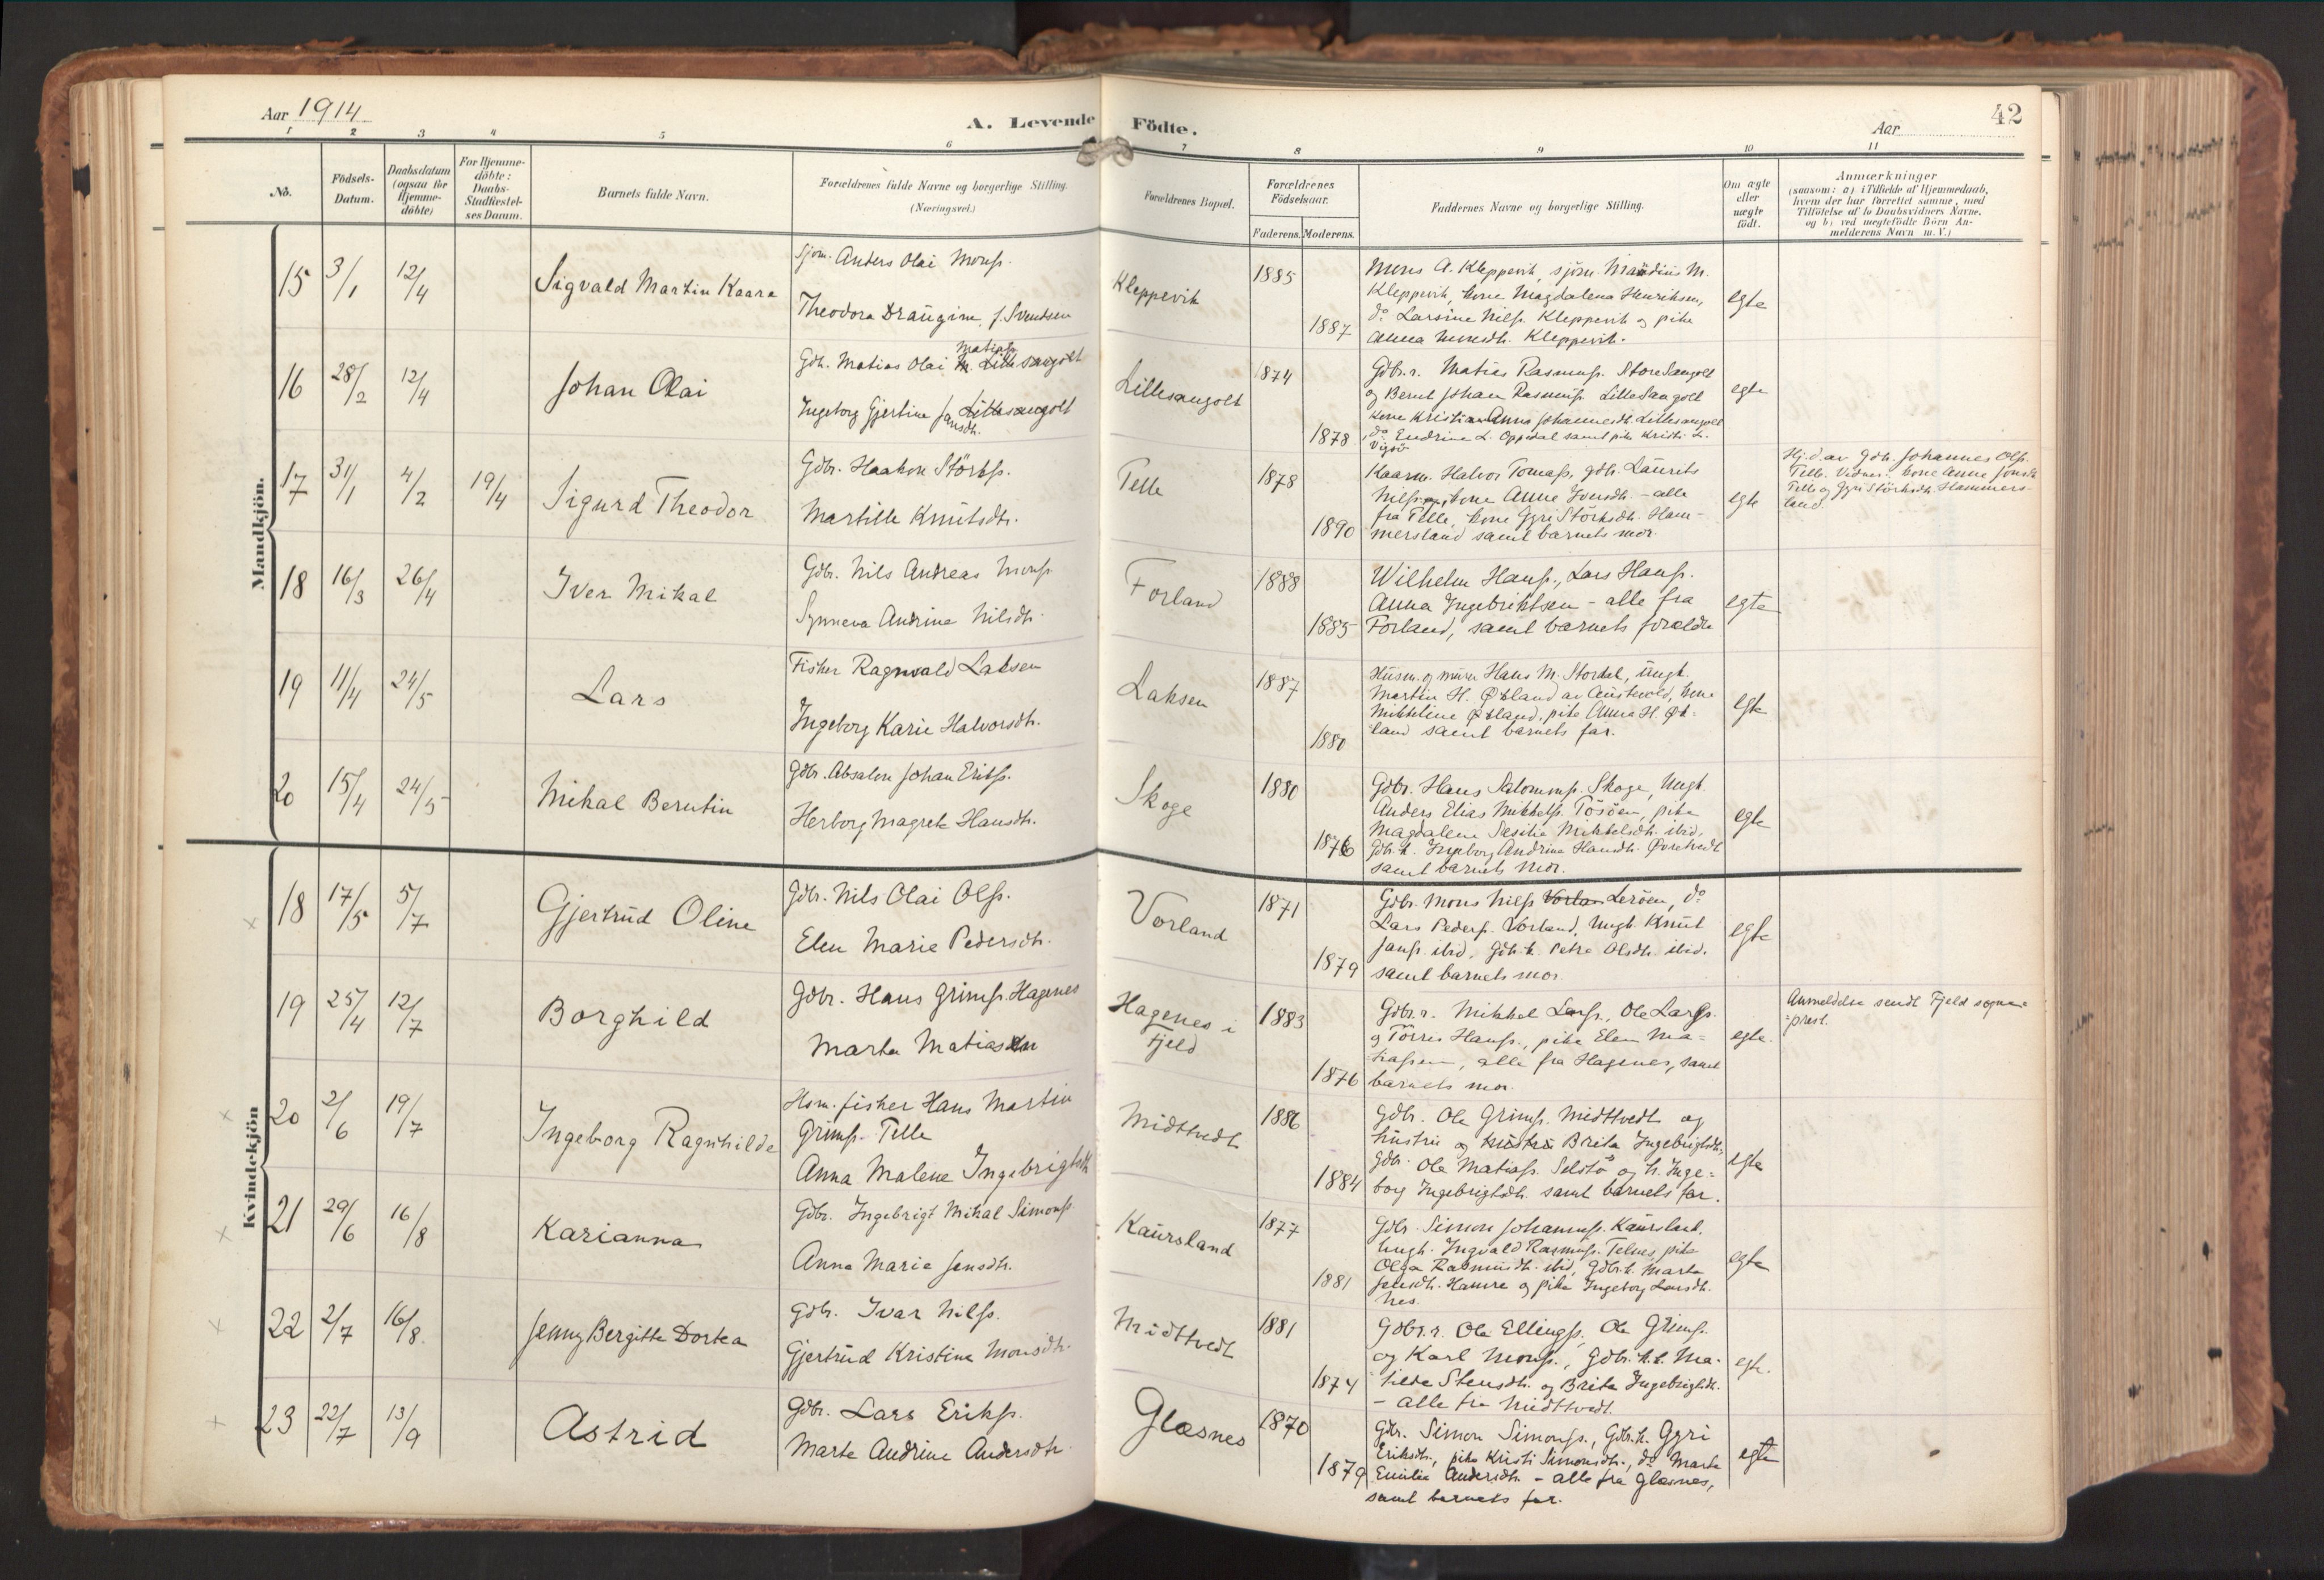 Aar 1914
A. Levende Födte.
Aar
42
1 2 3 4 5 6 7 8 9 10 11
No.
Födsels-Datum.
Daabsdatum (ogsaa for Hjemme-döbte)
For Hjemme-döbte: Daabs-Stadfæstel-ses Datum.
Barnets fulde Navn.
Forældrenes fulde Navne og borgerlige Stilling. (Næringsvei.)
Forældrenes Bopæl.
Forældrenes Födselsaar.
Faderens. Moderens.
Faddernes Navne og borgerlige Stilling.
Om ægte eller uægte födt.
Anmærkninger
(saasom: a) i Tilfælde af Hjemmedaab,
hvem der har forrettet samme, med
Tilföielse af to Daabsvidners Navne,
og b) ved uægtefödte Börn An-
melderens Navn m. V.)
Mandkjön.
15 3/1 12/4 Sigvald Martin Kaare
Sjøm. Anders Olai Monss.
Theodora Draugine f. Svendsen
Kleppevik 1885 1887
Mons A. Kleppevik, sjöm. M.
Kleppevik, kone Magdalena Henriksen,
do Larsine Nilss. Kleppevik og pike
Anna Monsdtr. Kleppevik.
egte
16 28/2 12/4 Johan Olai
Gdb. Matias Olai Matiass. Lille Sangolt
Ingeborg Gjertine Jansdtr. Lillesangolt
Lillesangolt 1874 1878
Gdbr.r. Matias Rasmuss. Store Sangolt
og Bernt Johan Rasmuss. Lille Sangolt
kone Kristianna Johannesdtr. Lillesangolt
do Endrine L. Oppidal samt pike Kristi L.
Vigsö
egte
17 31/1 4/2 19/4 Sigurd Theodor
Gdbr. Haakon Störkss.
Martille Knutsdtr.
Telle 1878 1890
Kaarm. Halvor Tomass, gdb. Laurits
Nilss, kone Anna Iversdtr. - alle
fra Telle, kone Gyri Störksdtr. Ham-
mersland samt barnets mor.
egte
Hj.d. av Gdb. Johannes Olss.
Telle. Vidner: kone Anna Jonsdtr.
Telle og Gyri Störksdtr. Hammers-
land.
18 16/3 26/4 Iver Mikal
Gdb. Nils Andreas Monss.
Synneva Andrine Nilsdtr.
Forland 1888 1885
Wilhelm Hanss., Lars Hanss.
Anna Ingebriktsen - alle fra
Forland, samt barnets foreldre
egte
19 11/4 24/5 Lars
Fisker Ragnvald Laksen
Ingeborg Karie Halvorsdtr.
Laksen 1887 1880
Husm. og murer Hans M. Stordal, ungk.
Martin H. Økland av Austevold, kone
Mikkeline Økland, pike Anna H. Øk-
land samt barnets far.
egte
20 15/4 24/5 Mikal Berntin
Gdbr. Absalon Johan Erikss.
Herborg Magrete Hansdtr.
Skoge 1880 1876
Gdbr. Hans Salomonss. Skoge, Ungk.
Anders Elias Mikkelss. Tösöen, pike
Magdalena Sesilie Mikkelsdtr. ibid,
Gdb.k. Ingeborg Andrine Hansdtr. Øvretvedt
samt barnets mor.
egte
Kvindekjön
18 17/5 5/7 Gjertrud Oline
Gdbr. Nils Olai Olss.
Elen Marie Pedersdtr.
Vorland 1871 1879
Gdbr. Mons Nilss Vorlan Leröen, do
Lars Pederss. Vorland, Ungk. Knut
Janss. ibid, Gdb.k. Petra Olsdtr. ibid.
samt barnets mor.
egte
19 25/4 12/7 Borghild
Gdbr. Hans Grimss. Hagenes
Marta Matiassen
Hagenes i Fjeld 1883 1876
Gdbr.r. Mikkel Larss., Ole Larss.
og Törris Hanss., pike Elen Ma-
tiassen, alle fra Hagenes, samt
barnets mor.
egte.
Anmeldelse sendt Fjeld sogne-
prest.
20 2/6 19/7 Ingeborg Ragnhilde
Hsm. fisker Hans Martin
Grimss. Telle
Anna Malene Ingebrigtsdtr.
Midttvedt 1886 1884
Gdbr. Ole Grimss. Midttvedt og
hustru og hustru Brita Ingebrigtsdtr.,
Gdb. Ole Matiass. Selstö og h. Inge-
borg Ingebrigtsdtr. samt barnets far.
egte
21 29/6 16/8 Karianna
Gdbr. Ingebrigt Mikal Simonss.
Anna Marie Jensdtr.
Kaursland 1877 1881
Gdbr. Simon Johanness. Kaursland,
Ungk. Ingvald Rasmuss. Telnes, pike
Olga Rasmusdtr. ibid, Gdbr.k. Marta
Jensdtr. Hamre og pike Ingeborg Larsdtr.
Nes.
egte
22 2/7 16/8 Jenny Bergitte Dortea
Gdbr. Ivar Nilss.
Gjertrud Kristina Monsdtr.
Midttvedt 1881 1874
Gdbr.r. Ole Ellingss, Ole Grimss.
og Karl Monss., Gdbr.k.k. Ma-
tilde Stensdtr. og Brita Ingebrigtsdtr.
- alle fra Midttvedt.
egte.
23 22/7 13/9 Astrid
Gdbr. Lars Erikss.
Marte Andrine Andersdtr.
Glæsnes 1870 1879
Gdbr. Simon Simonss., Gdbr.k. Gyri
Eriksdtr., pike Kristi Simonsdtr., do Marta
Emilie Andersdtr. - alle fra Glesnes,
samt barnets far.
egte